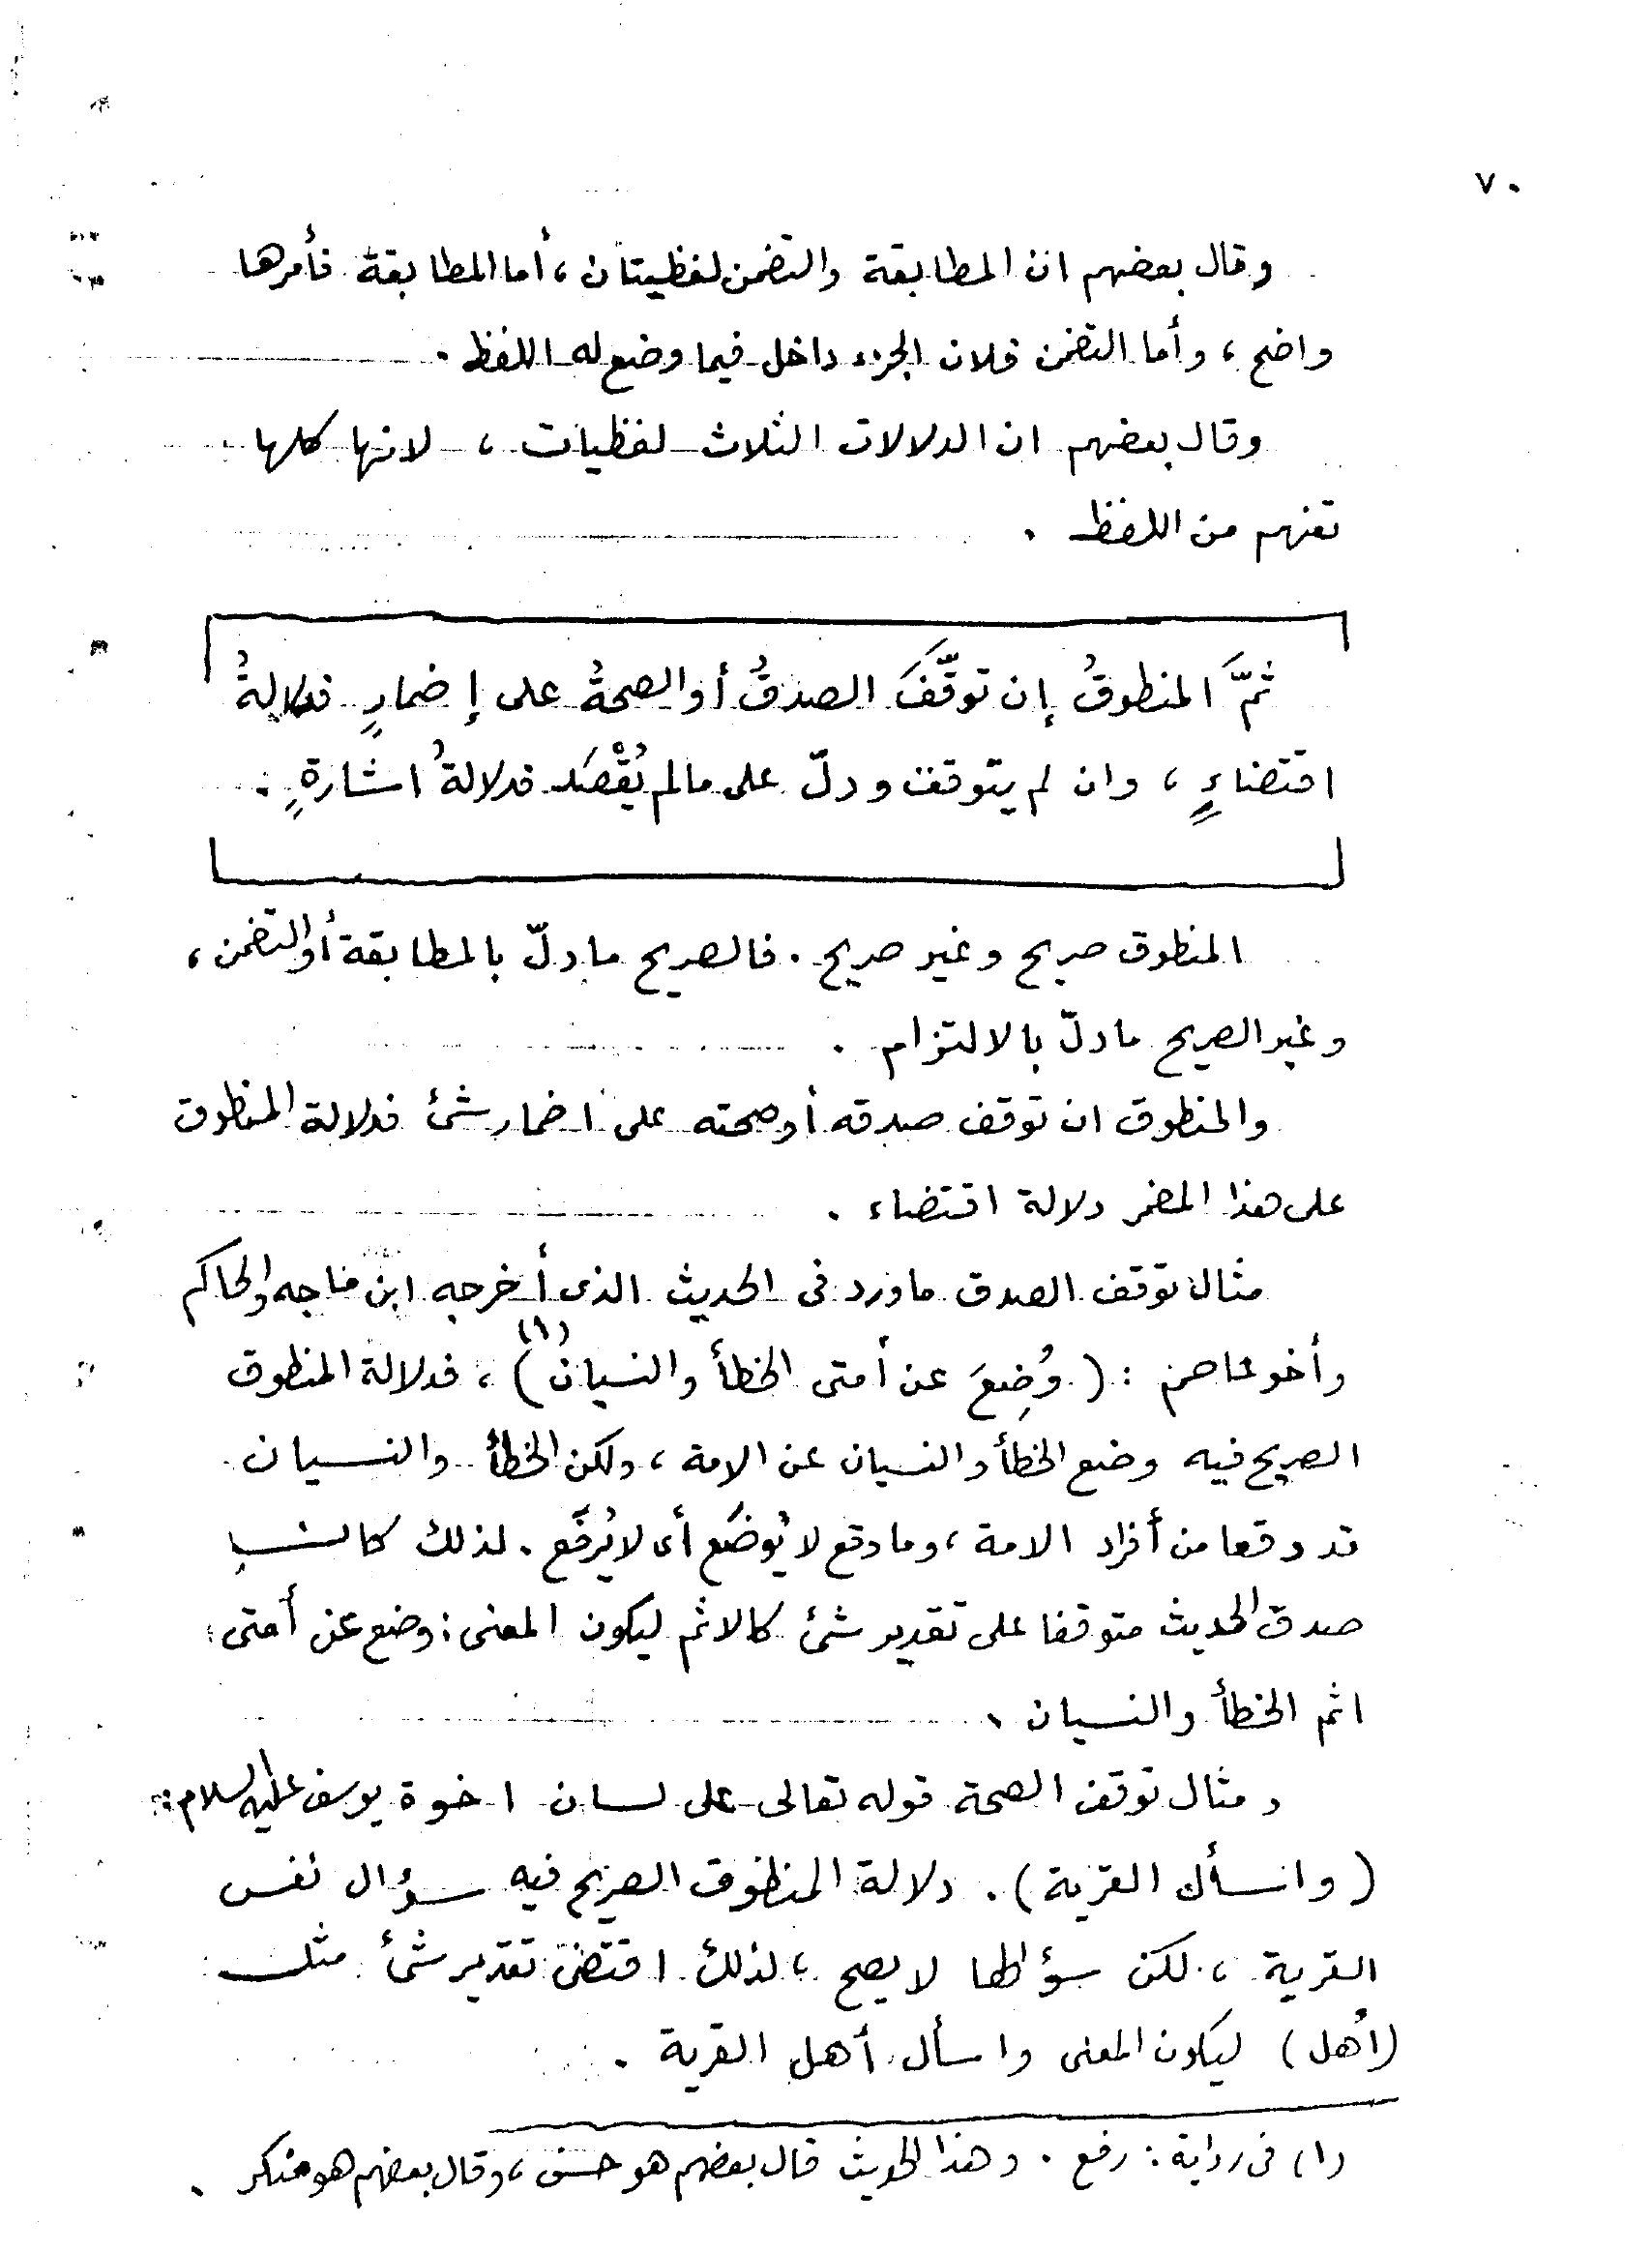 ٧٠
وقال بعضهم ان المطابقة والتضمن لفظيتان ، أما المطابقة فأمرها
واضح ، وأما التضمن فلان الجزء داخل فيما وضع له اللفظ .
وقال بعضهم ان الدلالات الثلاث لفظيات ، لانها كلها
تفهم من اللفظ .
ثمَّ المنطوقُ إن توقّفَ الصدقُ أو الصحةُ على إضمارٍ فدلالةُ
اقتضاءٍ ، وان لم يتوقف ودلّ على مالم يُقْصَد فدلالةُ اشارةٍ .
المنطوق صريح وغير صريح . فالصريح مادلّ بالمطابقة أو التضمن ،
وغير الصريح مادلّ بالالتزام .
والمنطوق ان توقف صدقه أو صحته على اضمار شئ فدلالة المنطوق
على هذا المضمر دلالة اقتضاء .
مثال توقف الصدق ماورد فى الحديث الذى أخرجه ابن ماجه والحاكم
وأخو عاصم : ( وُضِعَ عن أمتى الخطأ والنسيانُ ) (١) ، فدلالة المنطوق
الصريح فيه وضع الخطأ والنسيان عن الامة ، ولكن الخطأ والنسيان
قد وقعا من أفراد الامة ، وما وقع لا يُوضَع أى لا يُرفَع . لذلك كان
صدق الحديث متوقفا على تقدير شئ كالاثم ليكون المعنى : وضع عن أمتى
اثم الخطأ والنسيان .
ومثال توقف الصحة قوله تعالى على لسان اخوة يوسف عليه السلام :
( واسأل القرية ) . دلالة المنطوق الصريح فيه سؤال نفس
القرية ، لكن سؤالها لا يصح ، لذلك اقتضى تقدير شئ مثل
(أهل) ليكون المعنى واسأل أهل القرية .
(١) فى رواية : رفع . وهذا الحديث قال بعضهم هو حسن ، وقال بعضهم هو منكر .